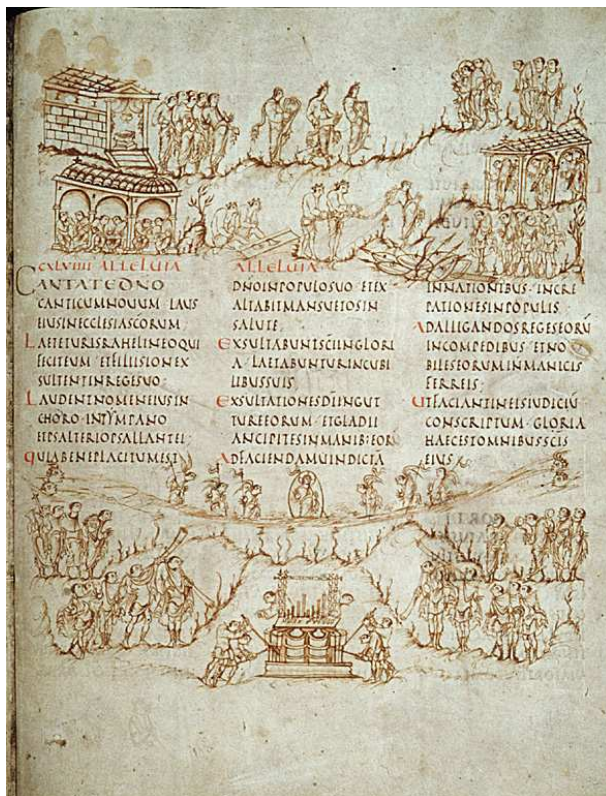 CXLVIIII ALLELUIA
CANTATE DNO
CANTICUM NOUUM LAUS
EIUS IN ECCLESIA SCORUM;
LAETETUR ISRAHEL IN EO QUI
FECIT EUM ET FILII SION EX
SULTENT IN REGE SUO;
LAUDENT NOMEN EIUS IN
CHORO IN TYMPANO
ET PSALTERIO PSALLANT EI;
QUIA BENEPLACITUM EST
ALLELUIA
DNO IN POPULO SUO ET EX
ALTABIT MANSUETOS IN
SALUTE;
EXSULTABUNT SCI IN GLORI
A LAETABUNTUR IN CUBI
LIBUS SUIS
EXSULTATIONES DI IN GUT
TURE EORUM ET GLADII
ANCIPITES IN MANIB; EOR
AD FACIENDAM UINDICTA
IN NATIONIBUS INCRE
PATIONES IN POPULIS
ADALLIGANDOS REGES EORU
IN COMPEDIBUS ET NO
BILES EORUM IN MANICIS
FERREIS;
UT FACIANT IN EIS IUDICIU
CONSCRIPTUM GLORIA
HAEC EST OMNIBUS SCIS
EIUS